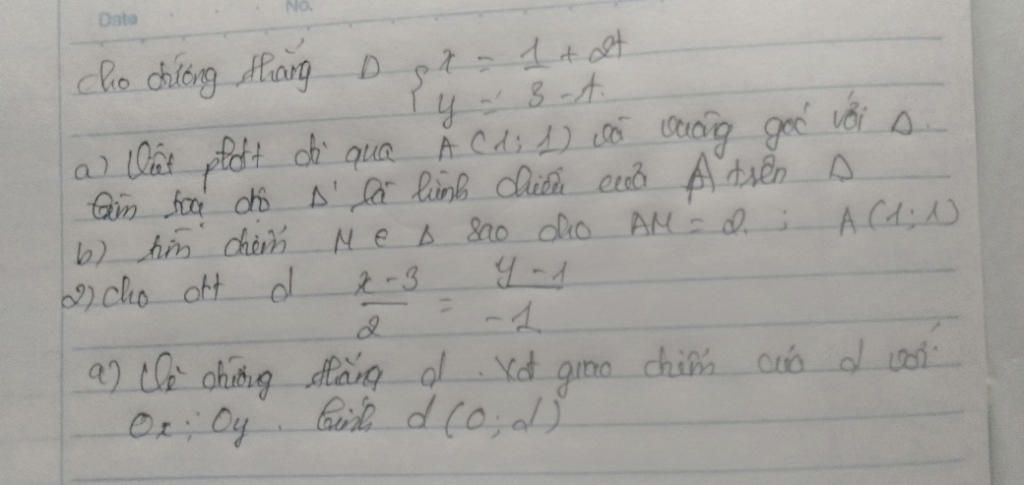 Date No.
Cho đường thẳng Δ { x = 1 + 2t
y = 3 - t.
a) Viết ptđt đi qua A (1; 1) và vuông góc với Δ.
tìm tọa độ A' là hình chiếu của A trên Δ
b) tìm điểm M ∈ Δ sao cho AM = 2. ; A (1; 1)
2) Cho đtt d x - 3 / 2 = y - 1 / -1
a) Vẽ đường thẳng d . Xđ giao điểm của d với
Ox; Oy . tính d (O; d)